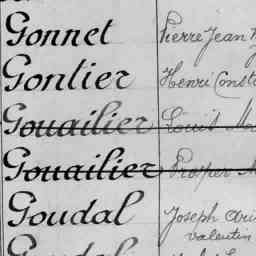 Gonnet Pierre Jean
Gontier Henri Const
Gouailier Louis
Gouailier Prosper M
Goudal Joseph
Valentin